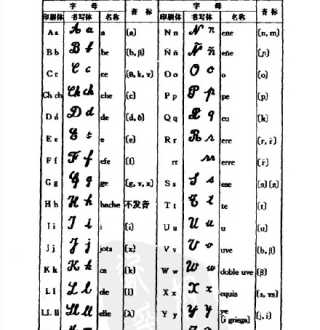 字 母 音 标 字 母 音 标
印刷体 书写体 名称 印刷体 书写体 名称
A a A a a [a] N n N n ene [n, m]
B b B b be [b, β] Ñ ñ Ñ ñ eñe [ɲ]
C c C c ce [θ, k, ɣ] O o O o o [o]
Ch ch Ch ch che [c] P p P p pe [p]
D d D d de [d, ð] Q q Q q cu [k]
E e E e e [e] R r R r ere [r, r̄]
F f F f efe [f] rr rr erre [r̄]
G g G g ge [g, ɣ, x] S s S s ese [s] [z]
H h H h hache 不发音 T t T t te [t]
I i I i i [i] U u U u u [u]
J j J j jota [x] V v V v uve [b, β]
K k K k ca [k] W w W w doble uve [β]
L l L l ele [l] X x X x equis [s, ɣs]
LL ll Ll ll elle [λ] Y y Y y ye [j, i]
(i griega)